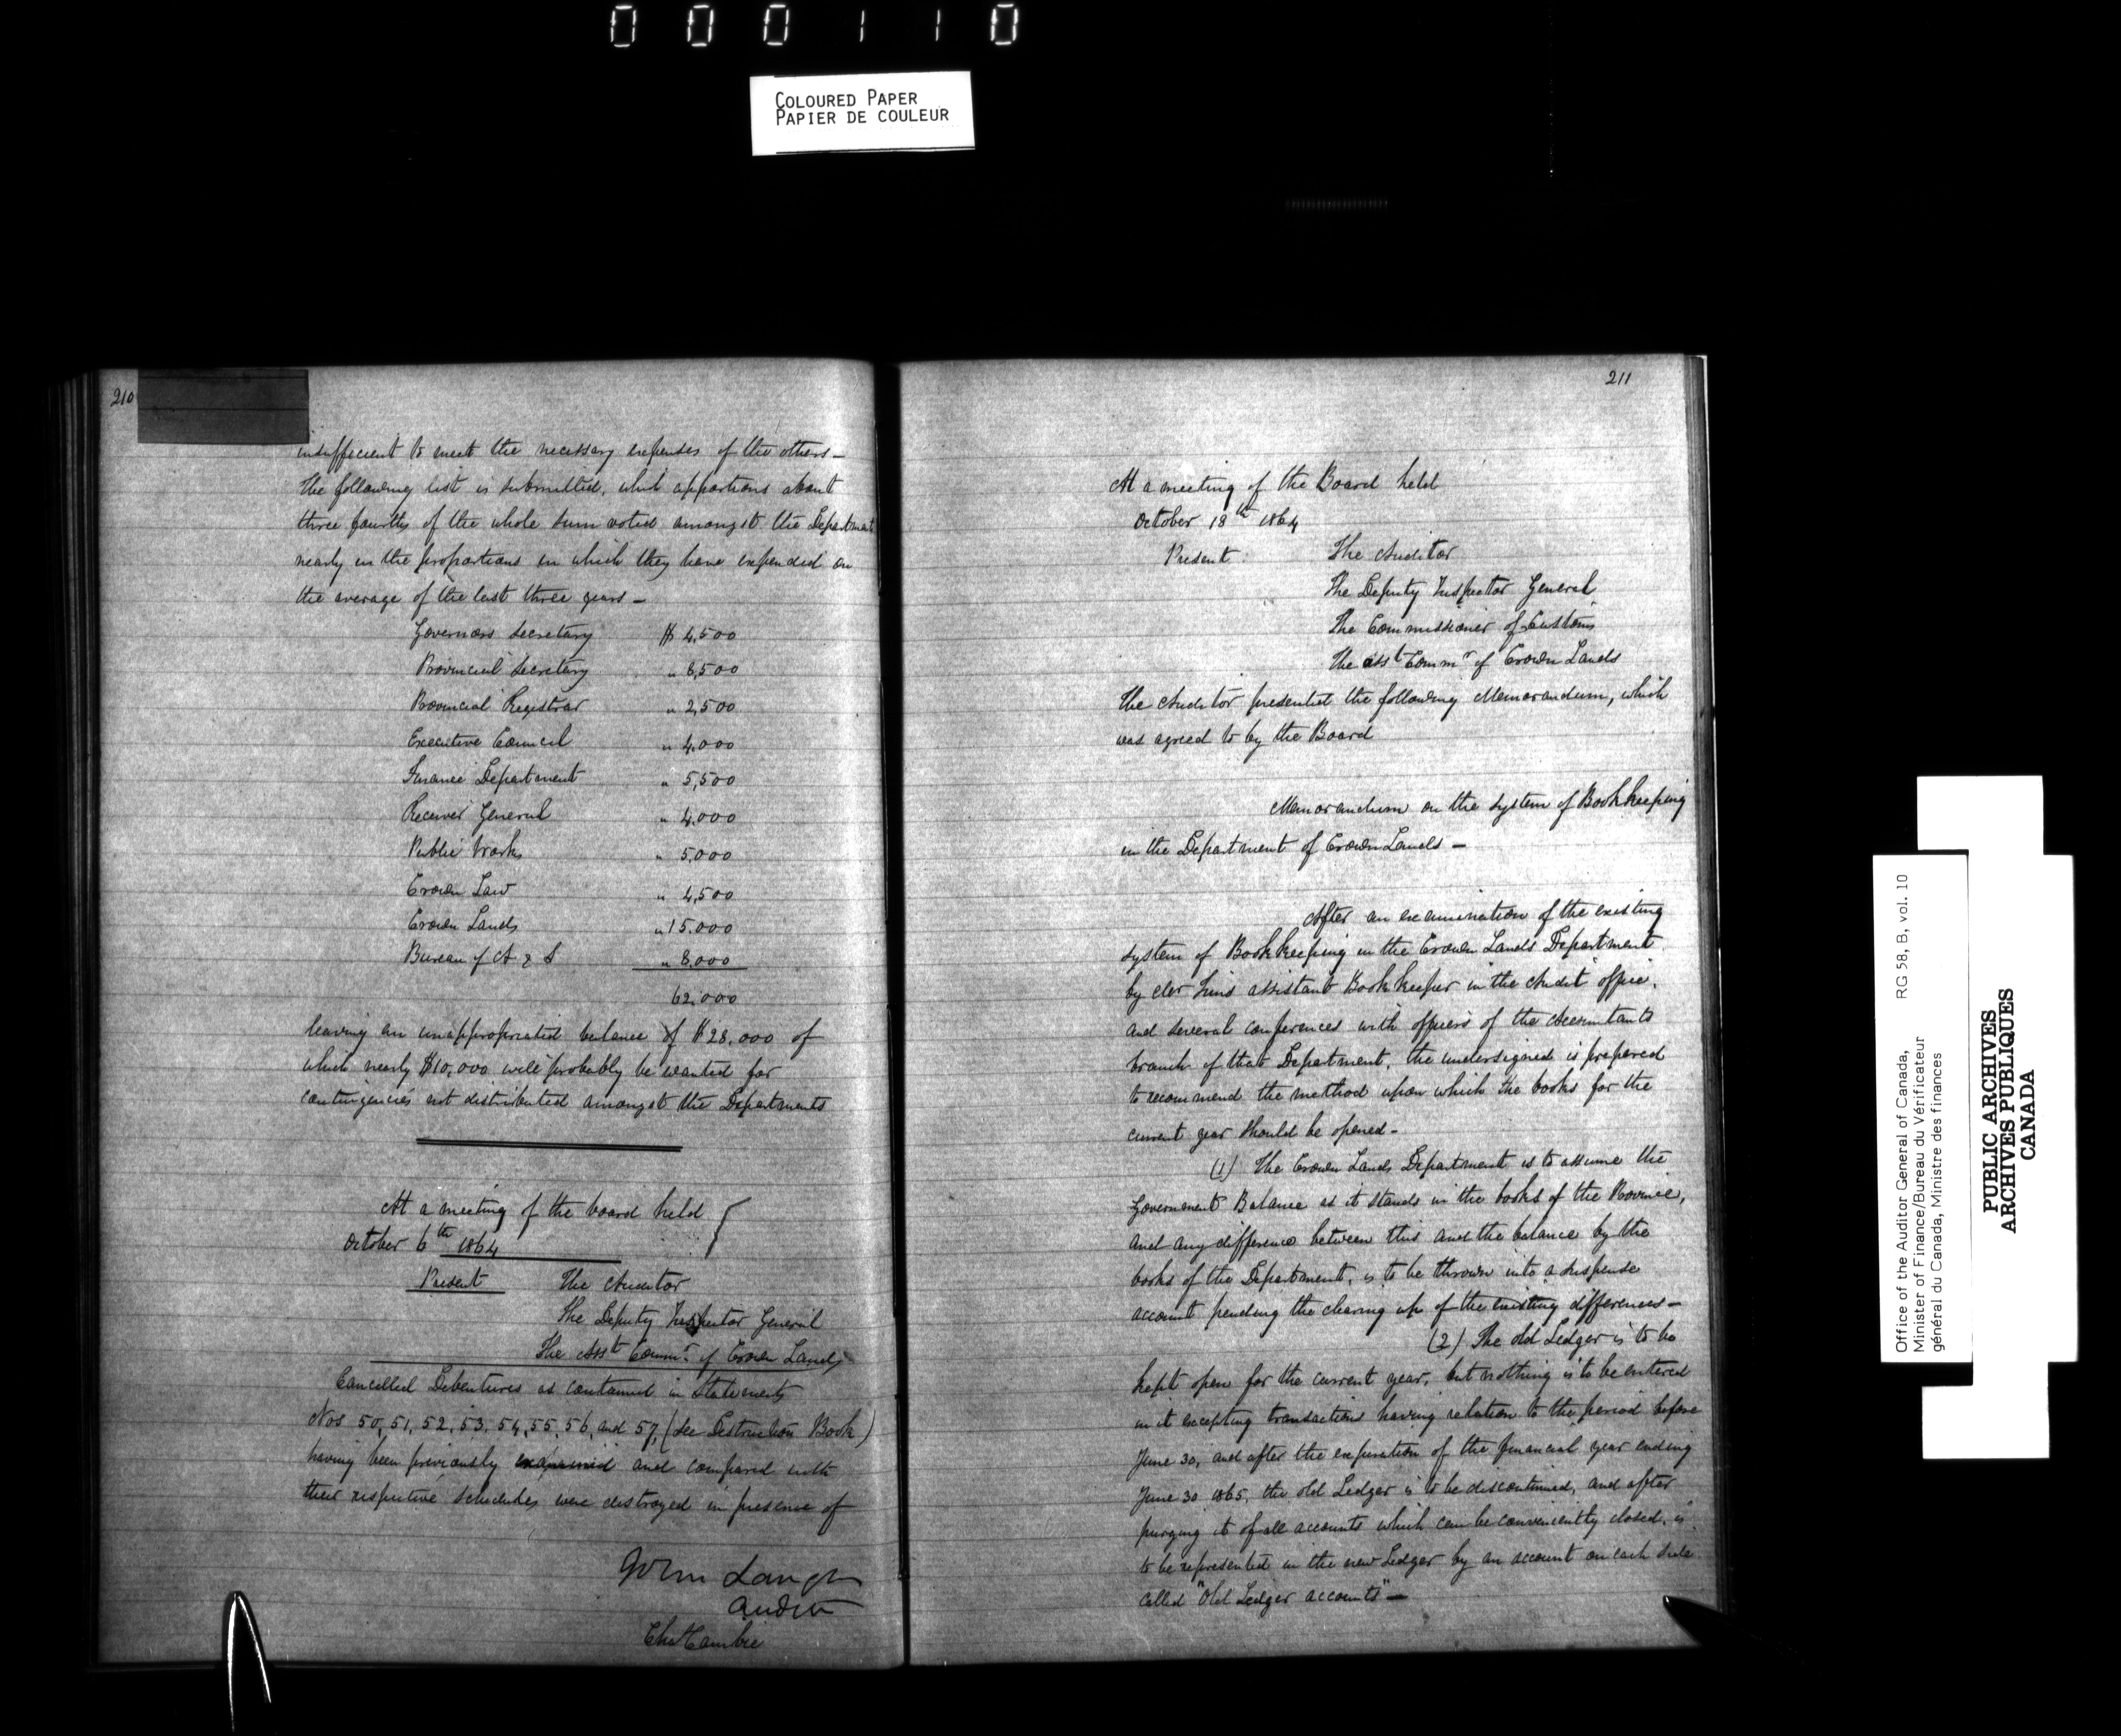 000110
COLOURED PAPER
PAPIER DE COULEUR
210
insufficient to meet the necessary expenses of the others —
The following list is submitted, which apportions about
three fourths of the whole sum voted amongst the Department
nearly in the proportions in which they have expended on
the average of the last three years —
Governors Secretary $ 4,500
Provincial Secretary " 8,500
Provincial Registrar " 2,500
Executive Council " 4,000
Finance Department " 5,500
Receiver General " 4,000
Public Works " 5,000
Crown Law " 4,500
Crown Lands " 15.000
Bureau of A & S " 8,000
62,000
leaving an unappropriated balance of $28,000 of
which nearly $10,000 will probably be wanted for
contingencies not distributed amongst the Departments
At a meeting of the board held
October 6th 1864
Present The Auditor
The Deputy Inspector General
The Asst Commr of Crown Lands
Cancelled Debentures as contained in Statements
Nos 50, 51, 52, 53, 54, 55, 56, and 57, (See Destruction Book)
having been previously examined and compared with
their respective Schedules were destroyed in presence of
John Langton
Auditor
Chs Cambie
211
At a meeting of the Board held
October 18th 1864
Present The Auditor
The Deputy Inspector General
The Commissioner of Customs
The Asst Commr of Crown Lands
The Auditor presented the following Memorandum, which
was agreed to by the Board
Memorandum on the system of Bookkeeping
in the Department of Crown Lands —
After an examination of the existing
system of Bookkeeping in the Crown Lands Department
by Mr Sims assistant Bookkeeper in the Audit office,
and several conferences with officers of the Accountants
branch of that Department, the undersigned is prepared
to recommend the method upon which the books for the
current year should be opened —
(1) The Crown Lands Department is to assume the
Government Balance as it stands in the books of the Province,
and any difference between this and the balance by the
books of the Department, is to be thrown into a suspense
account pending the clearing up of the existing differences —
(2) The old Ledger is to be
kept open for the current year, but nothing is to be entered
in it excepting transactions having relation to the period before
June 30, and after the expiration of the financial year ending
June 30 1865, the old Ledger is to be discontinued, and after
purging it of all accounts which can be conveniently closed, is
to be represented in the new Ledger by an account on each side
called "Old Ledger accounts" —
Office of the Auditor General of Canada, RG 58, B, vol. 10
Minister of Finance/Bureau du Vérificateur
général du Canada, Ministre des finances
PUBLIC ARCHIVES
ARCHIVES PUBLIQUES
CANADA